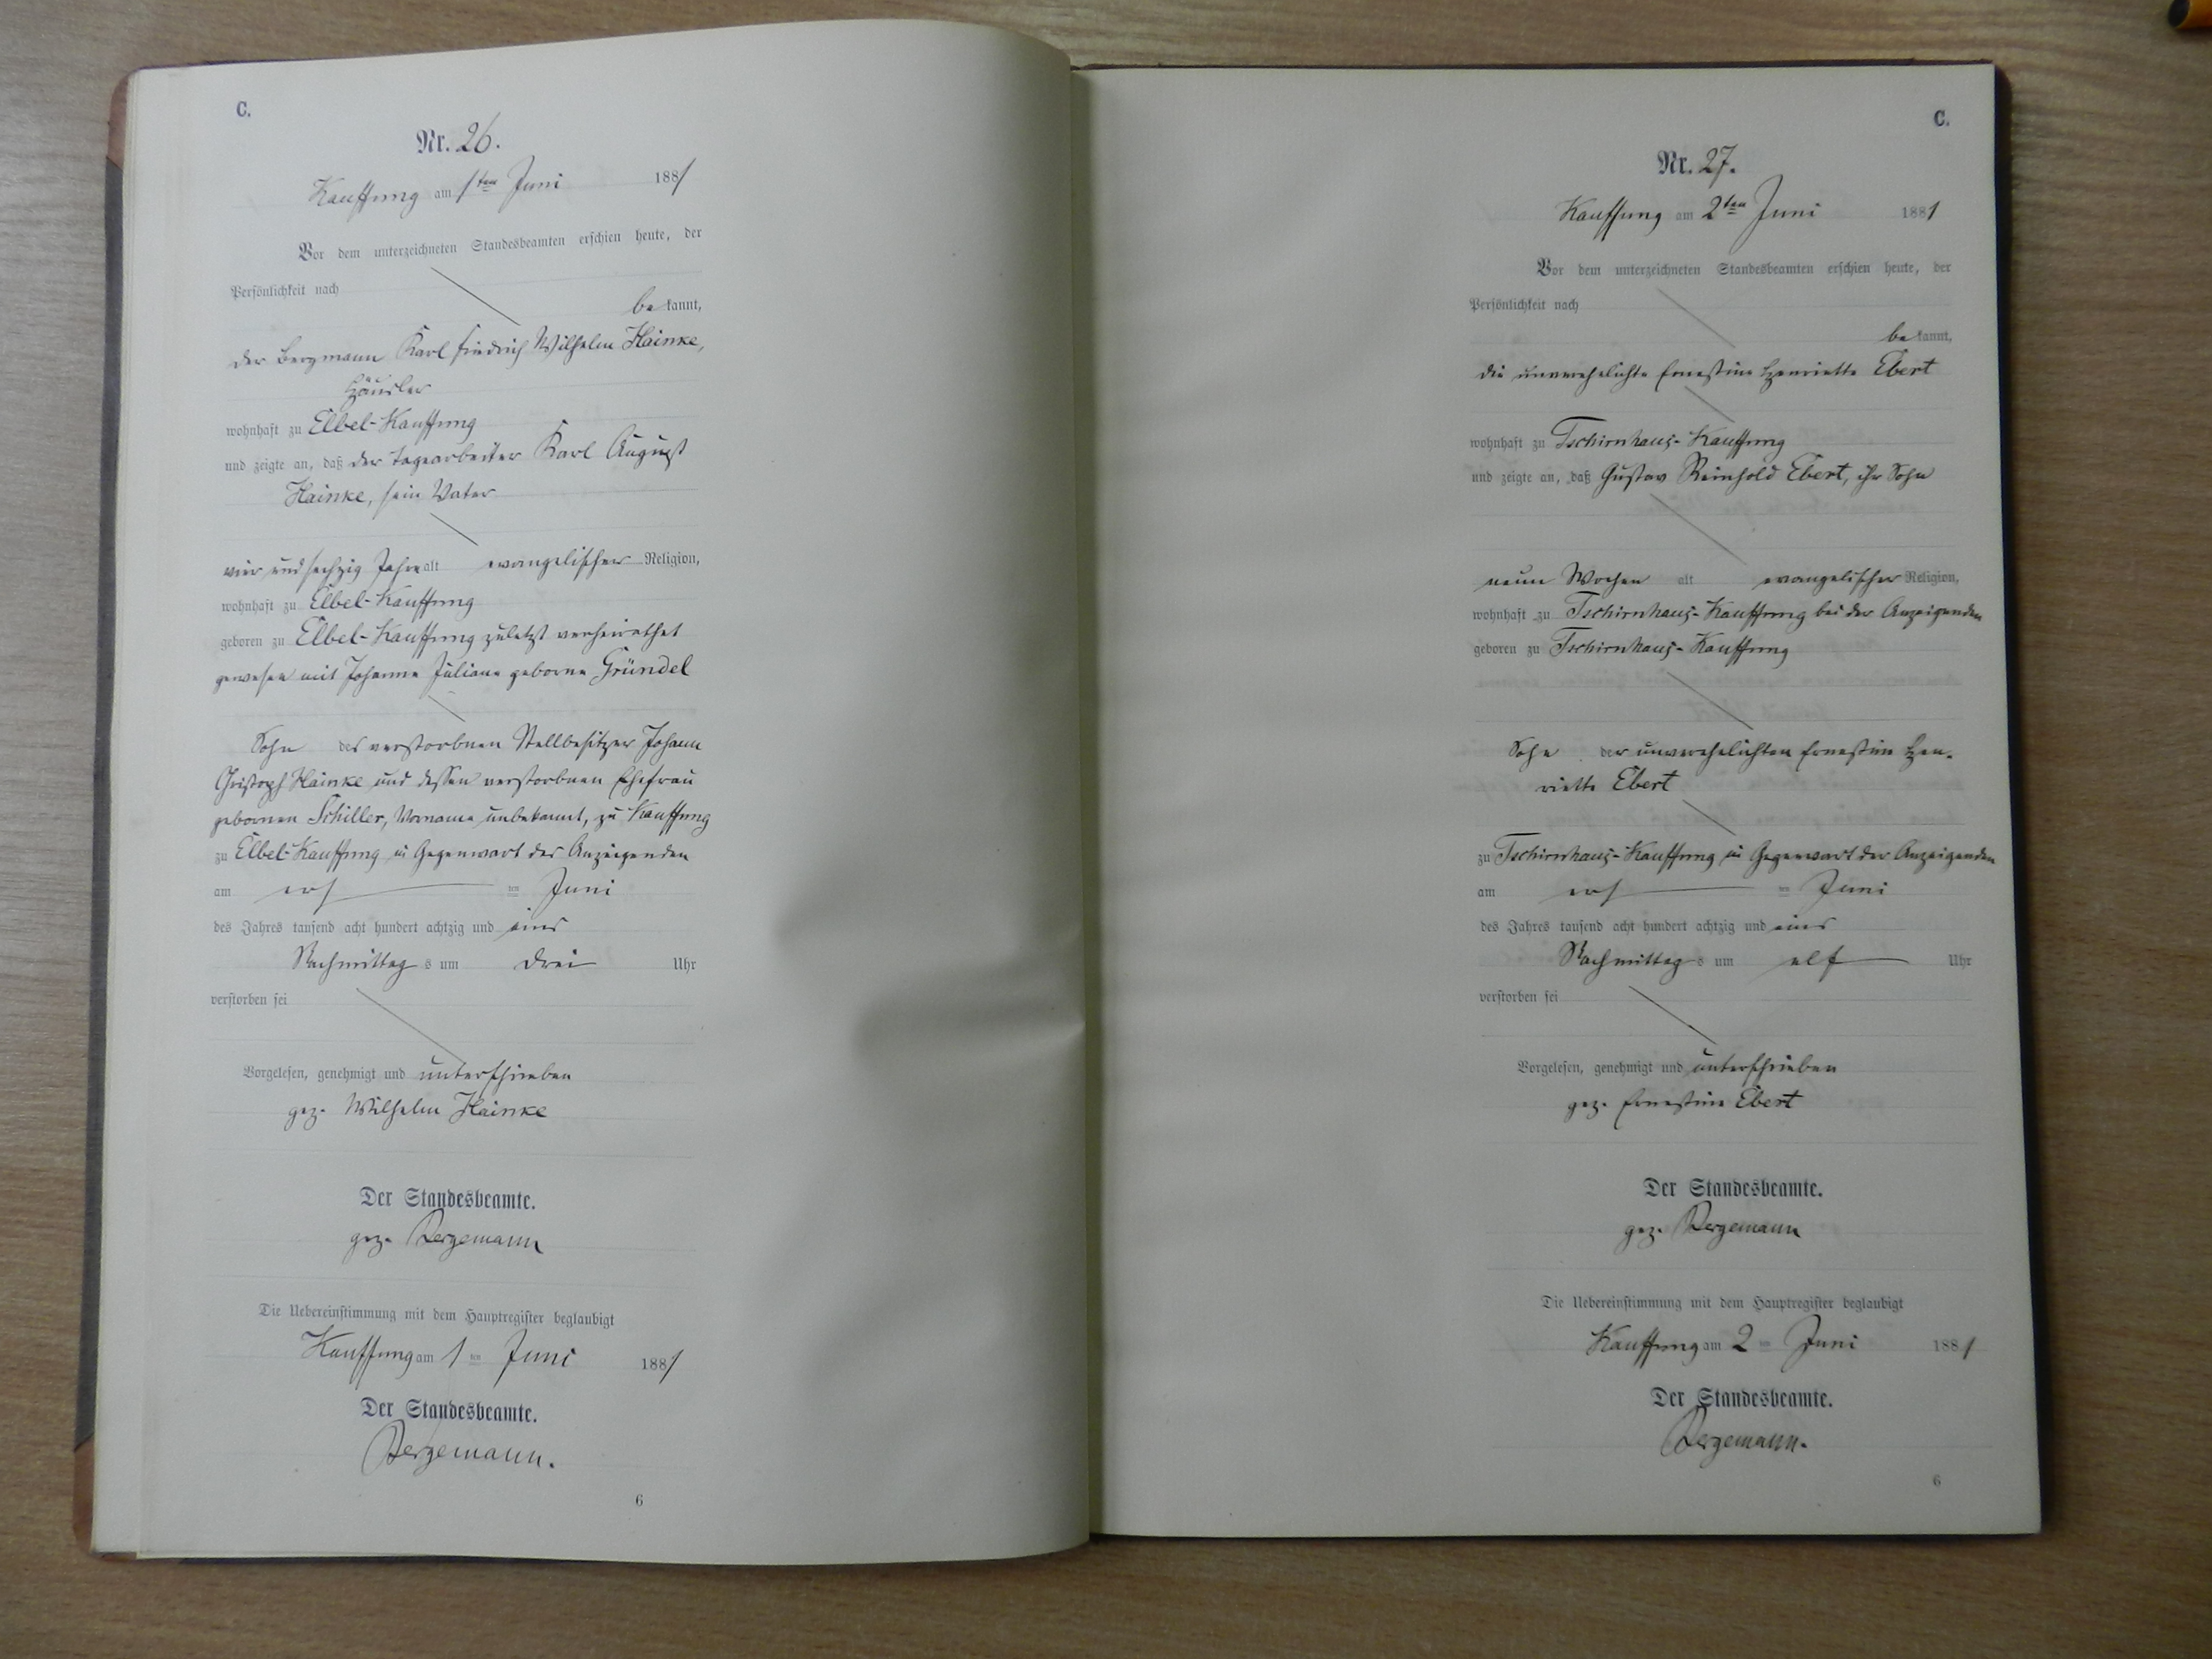 C.
Nr. 26.
Kauffung am 1ten Juni 1881
Vor dem unterzeichneten Standesbeamten erschien heute, der
Persönlichkeit nach
be kannt,
der Bergmann Karl Friedrich Wilhelm Hainke,
Häusler
wohnhaft zu Elbel-Kauffung
und zeigte an, daß der Tagearbeiter Karl August
Hainke, sein Vater
vier und sechzig Jahre alt evangelischer Religion,
wohnhaft zu Elbel-Kauffung
geboren zu Elbel-Kauffung zuletzt verheirathet
gewesen mit Johanne Juliane geborne Gründel
Sohn des verstorbnen Stellbesitzer Johann
Christoph Hainke und dessen verstorbnen Ehefrau
gebornen Schiller, Vorname unbekannt, zu Kauffung
zu Elbel-Kauffung in Gegenwart des Anzeigenden
am ers ten Juni
des Jahres tausend acht hundert achtzig und eins
Nachmittag s um drei Uhr
verstorben sei
Vorgelesen, genehmigt und unterschrieben
gez. Wilhelm Hainke
Der Standesbeamte.
gez. Bergemann
Die Uebereinstimmung mit dem Hauptregister beglaubigt
Kauffung am 1 ten Juni 1881
Der Standesbeamte.
Bergemann.
6
C.
Nr. 27.
Kauffung am 2ten Juni 1881
Vor dem unterzeichneten Standesbeamten erschien heute, der
Persönlichkeit nach
be kannt,
die unverehelichte Ernestine Henriette Ebert
wohnhaft zu Tschirnhaus-Kauffung
und zeigte an, daß Gustav Reinhold Ebert, ihr Sohn
neun Wochen alt evangelischer Religion,
wohnhaft zu Tschirnhaus-Kauffung bei der Anzeigenden
geboren zu Tschirnhaus-Kauffung
Sohn der unverehelichten Ernestine Hen-
riette Ebert
zu Tschirnhaus-Kauffung in Gegenwart der Anzeigenden
am ers ten Juni
des Jahres tausend acht hundert achtzig und eins
Nachmittag s um elf Uhr
verstorben sei
Vorgelesen, genehmigt und unterschrieben
gez. Ernestine Ebert
Der Standesbeamte.
gez. Bergemann
Die Uebereinstimmung mit dem Hauptregister beglaubigt
Kauffung am 2 ten Juni 1881
Der Standesbeamte.
Bergemann.
6